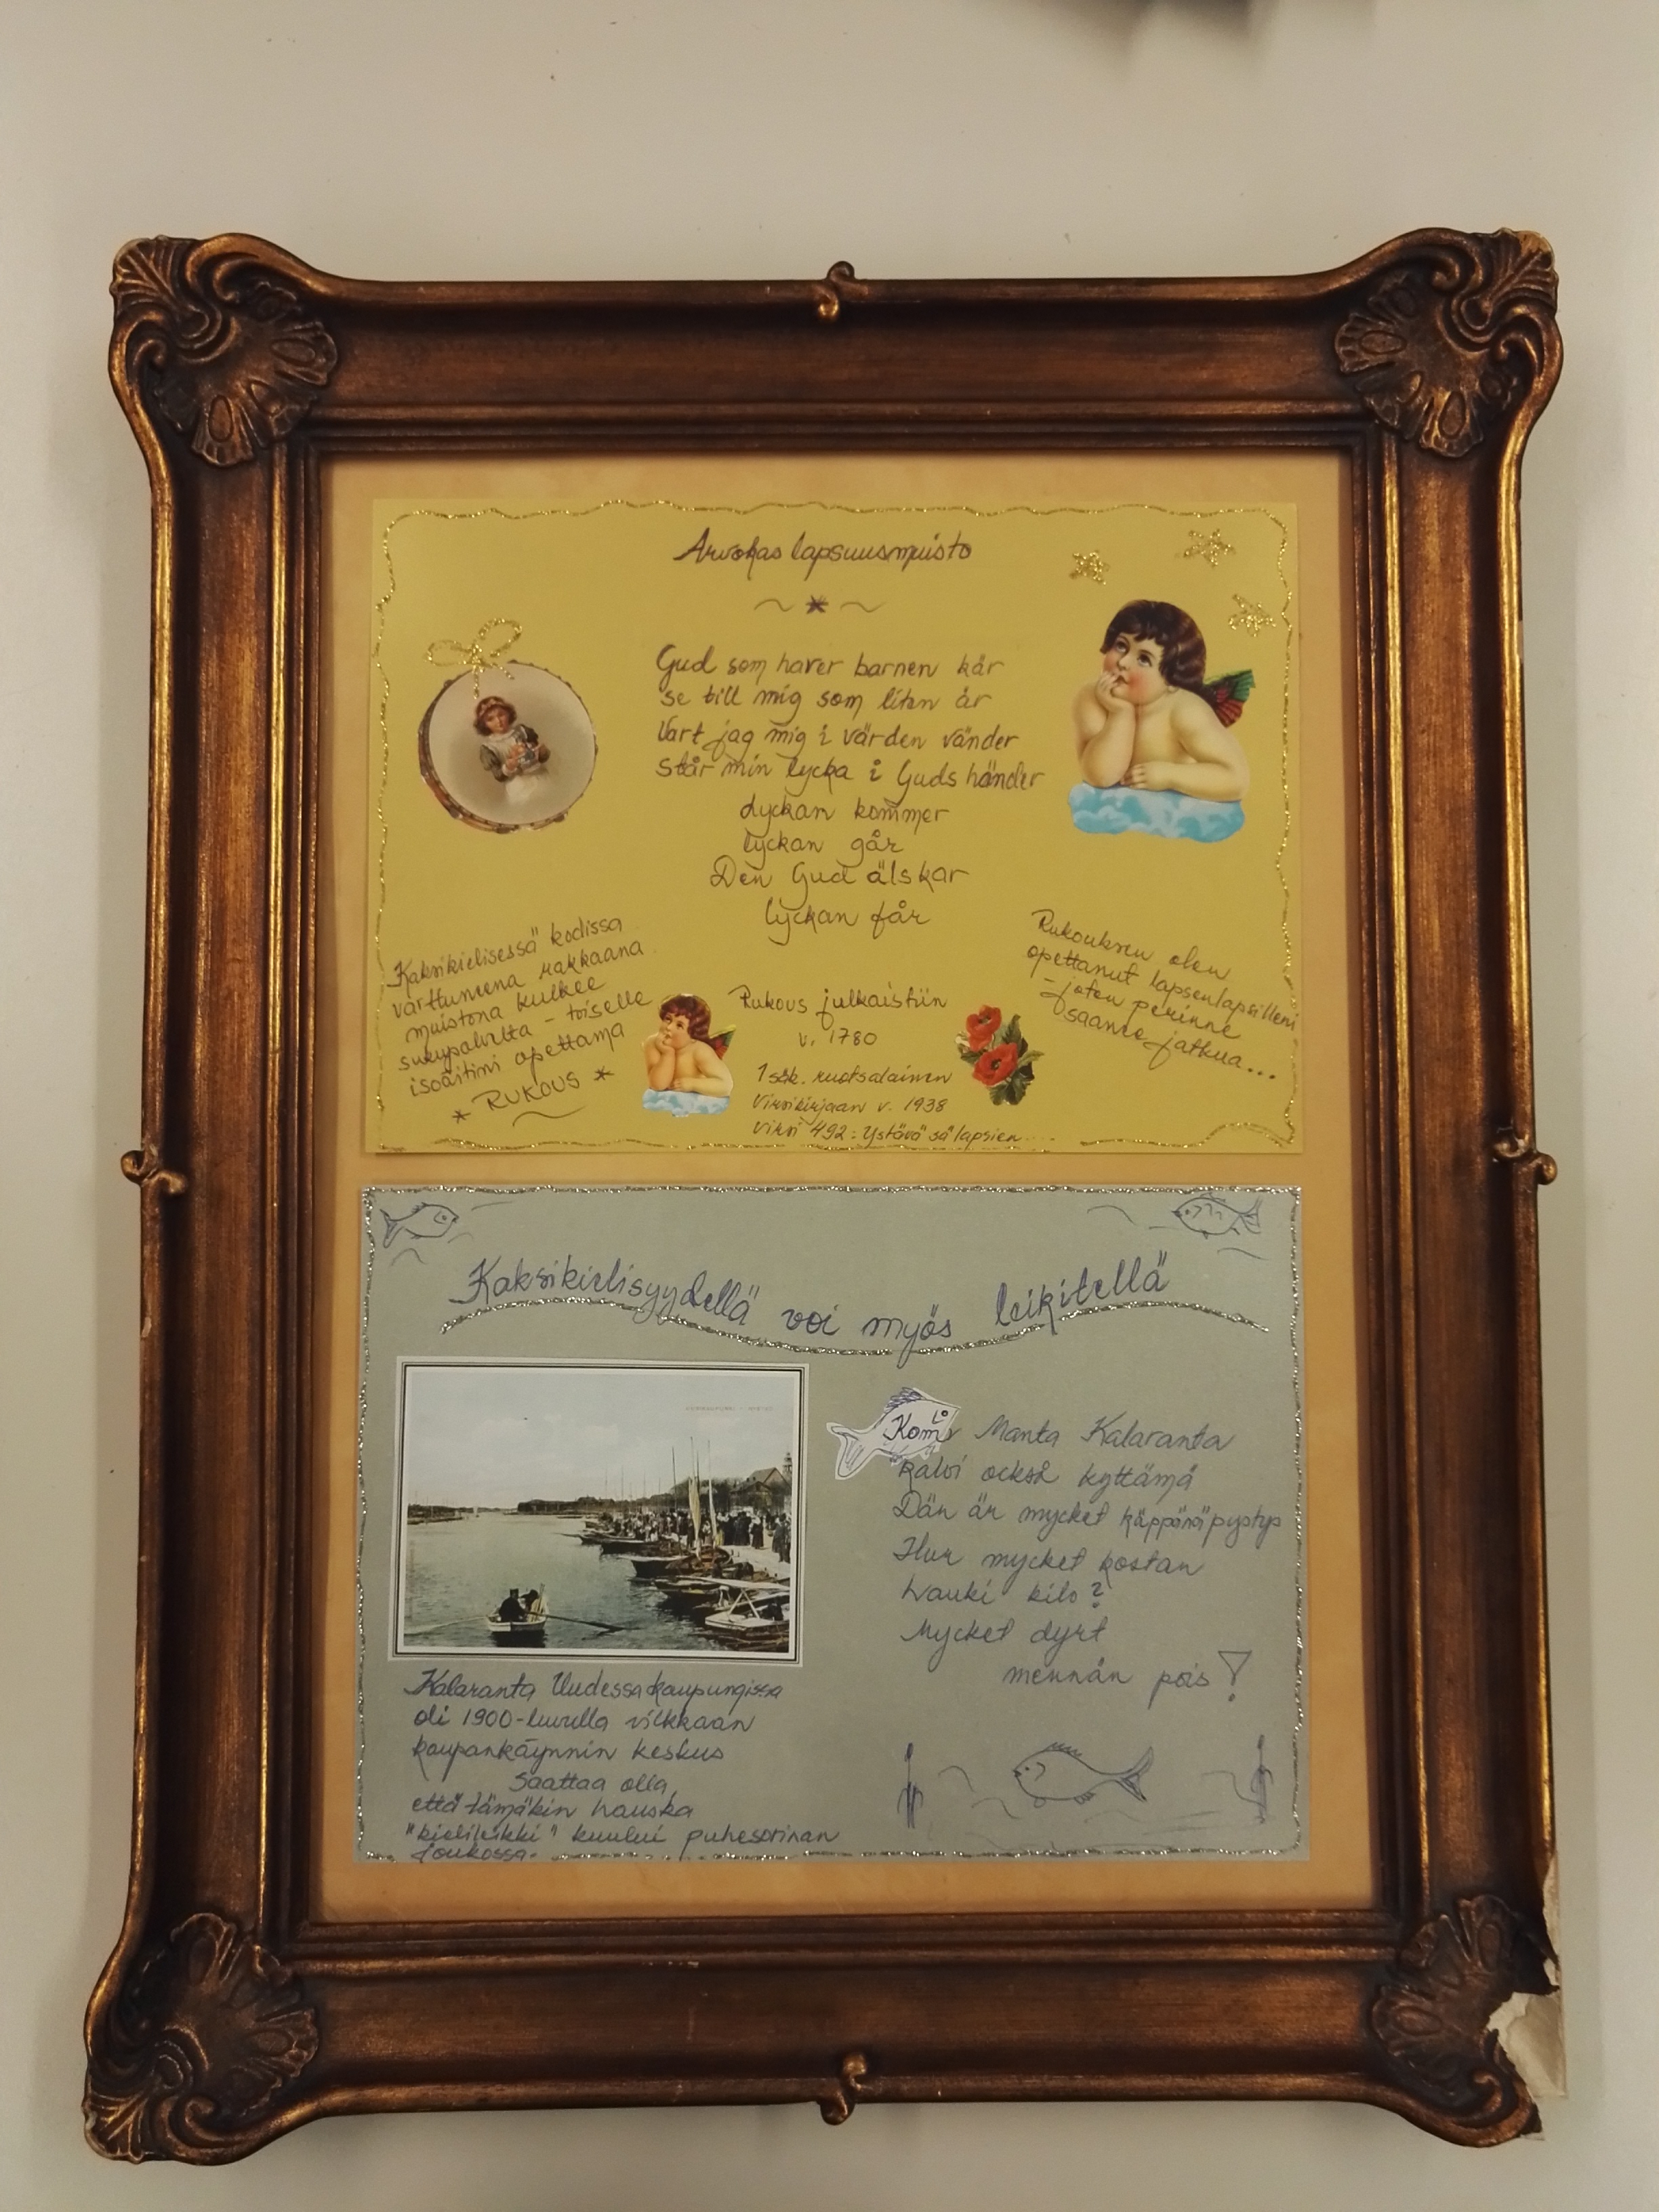 Arvokas lapsuusmuisto
Gud som haver barnen kär
se till mig som liten är
Vart jag mig i värden vänder
står min lycka i Guds händer
Lyckan kommer
lyckan går
Den Gud älskar
lyckan får
Kaksikielisessä kodissa
varttuneena rakkaana
muistona kulkee
sukupolvelta - toiselle
isoäitini opettama
* RUKOUS *
Rukous julkaistiin
v. 1780
1 säk. ruotsalainen
Virsikirjaan v. 1938
Virsi 492: Ystävä sä lapsien....
Rukouksen olen
opettanut lapsenlapsilleni
- joten perinne
saanee jatkua...
Kaksikielisyydellä voi myös leikitellä
Kalaranta Uudessakaupungissa
oli 1900-luvulla vilkkaan
kaupankäynnin keskus
saattaa olla
että tämäkin hauska
"kielileikki" kuului puhesorinan
joukossa.
Kom Manta Kalaranta
kalvi också kyttämä
Där är mycket käppäräpystyp
Hur mycket kostan
hauki kilo?
Mycket dyrt
mennän pois!